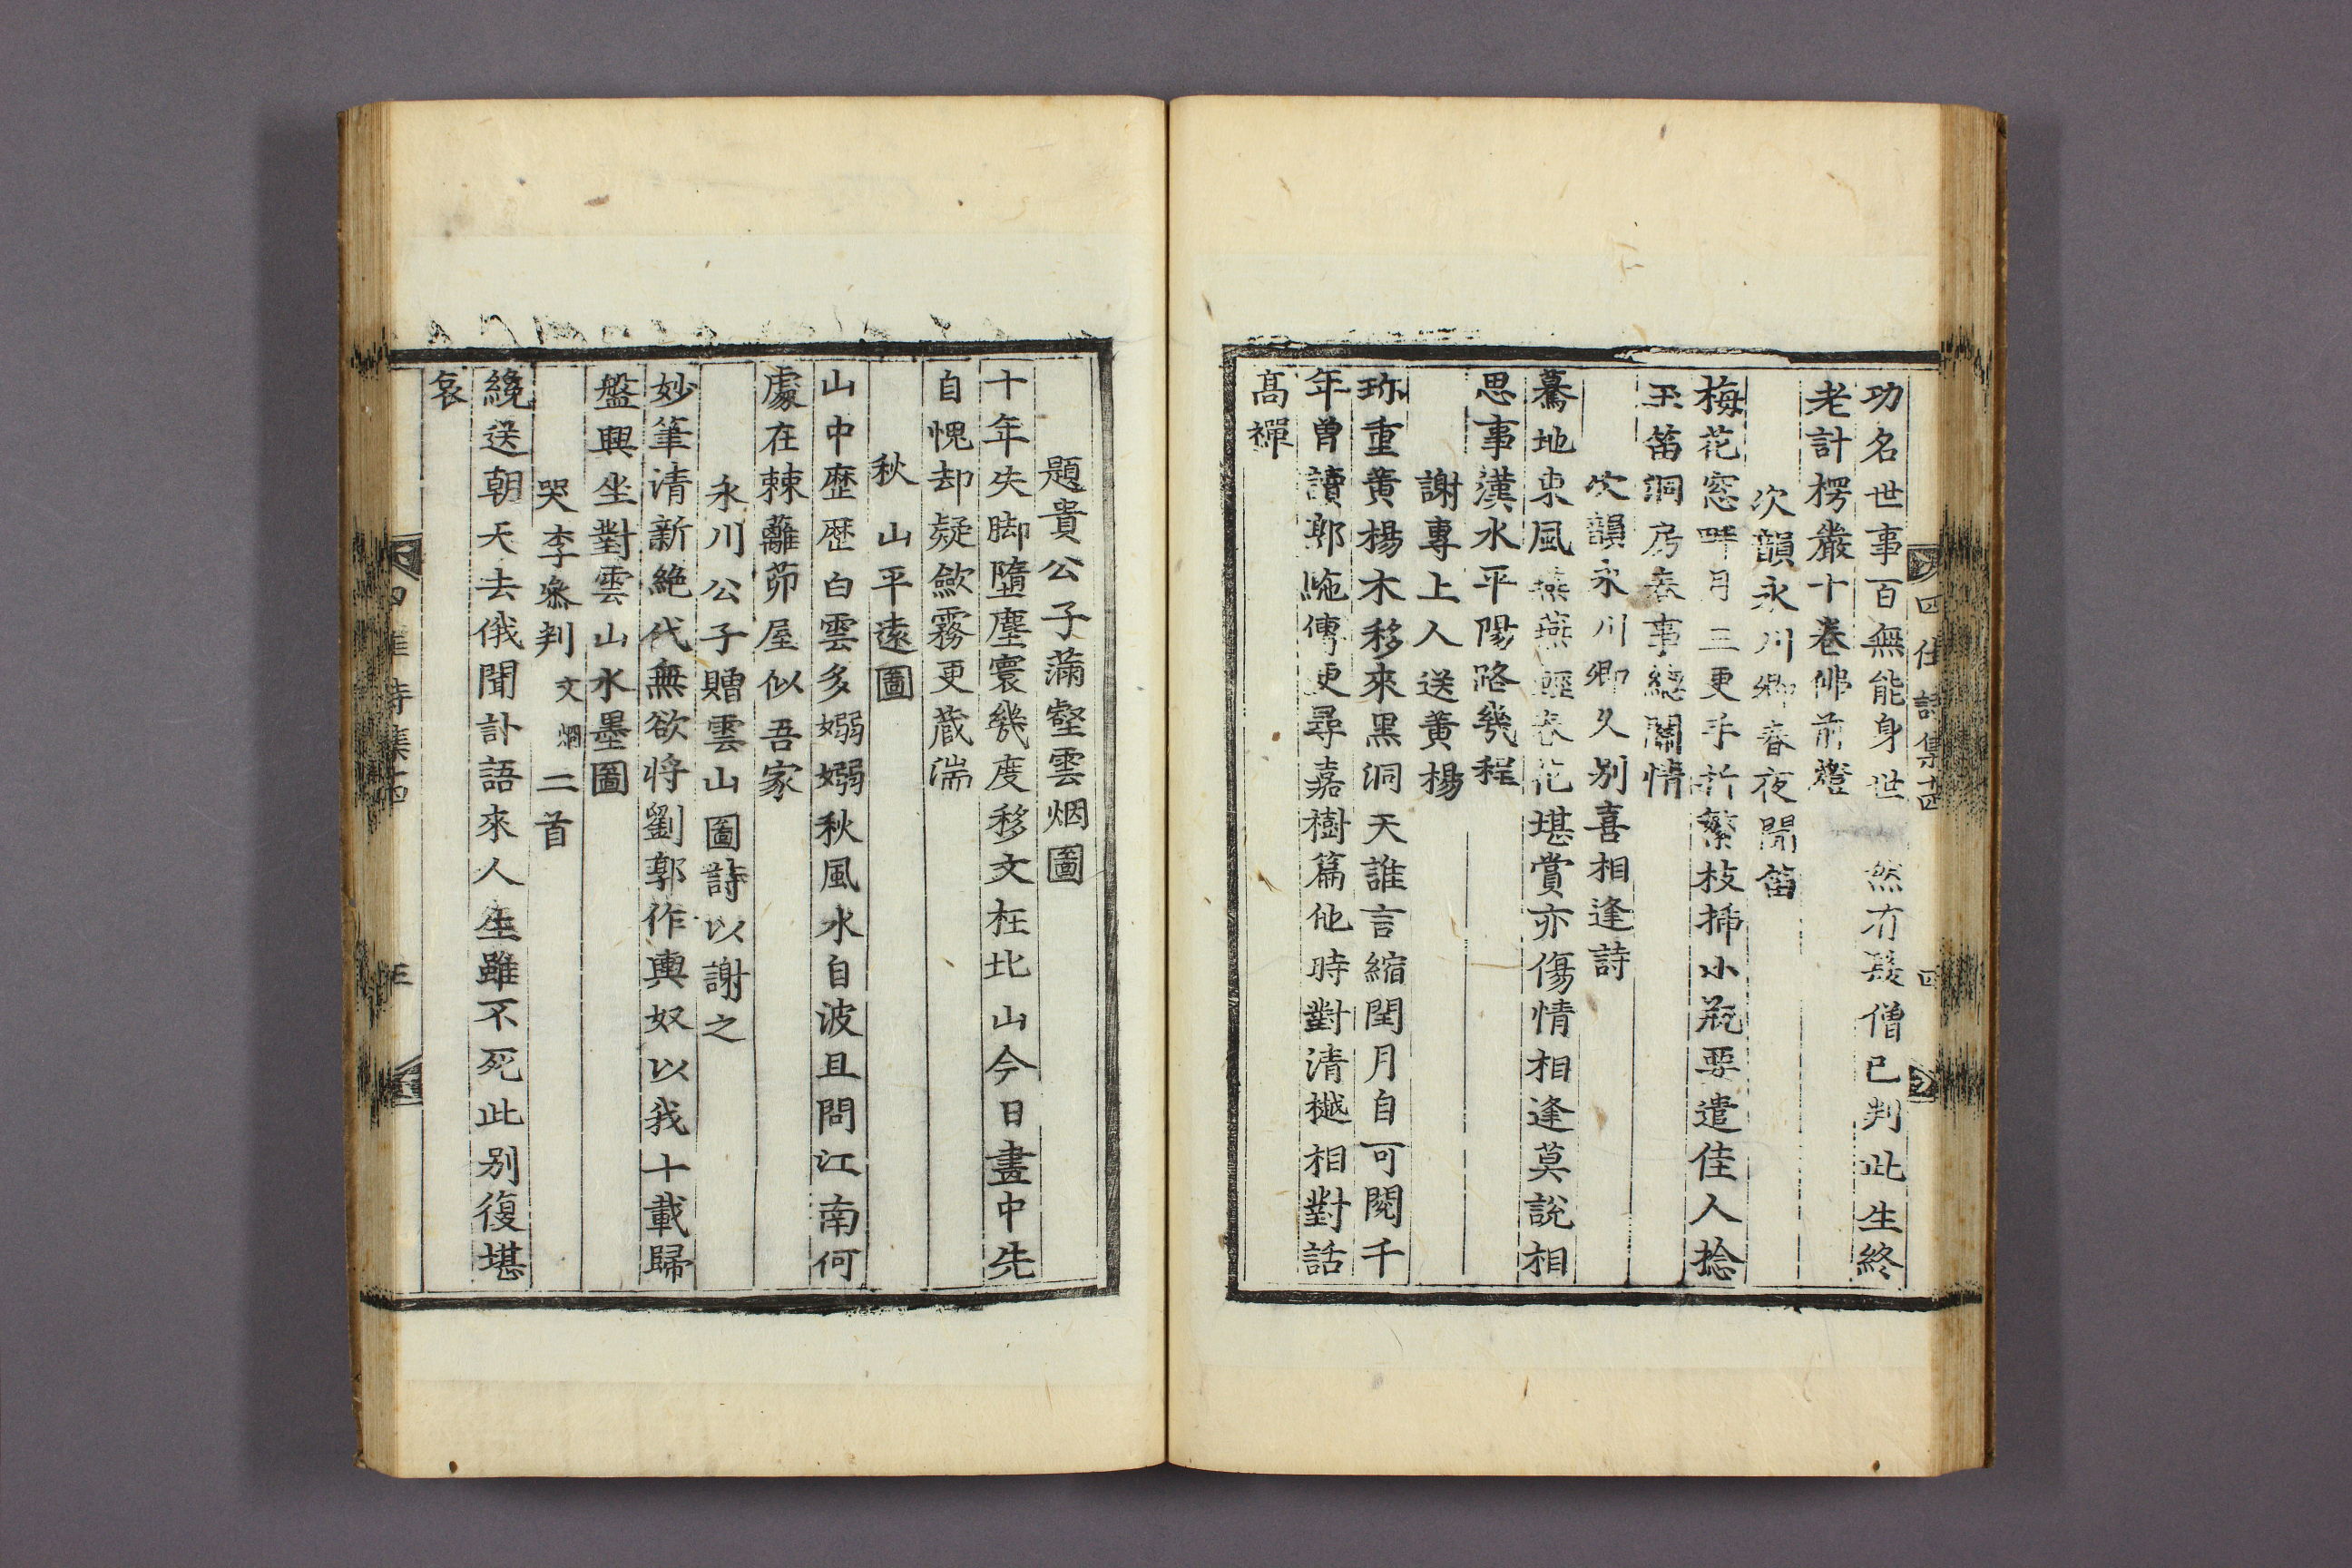 功名世事百無能身世 然有髮僧已判此生終
老計楞嚴十卷佛前燈
次韻永川卿春夜聞笛
梅花窓畔月三更手折繁枝揷小甁要遣佳人捻
玉笛洞房春事緫關情
次韻永川卿久別喜相逢詩
驀地東風燕燕輕衣花堪賞亦傷情相逢莫說相
思事漢水平陽路幾程
謝專上人送黃楊
珎重黃楊木移來黑洞天誰言縮閏月自可閱千
年曾讀郭駞傳更尋嘉樹篇他時對清樾相對話
髙禪
四佳詩集十四 四
題貴公子滿壑雲烟圖
十年失脚墮塵寰幾度移文在北山今日畫中先
自愧却疑歛霧更蔵湍
秋山平遠圖
山中歷歷白雲多嫋嫋秋風水自波且問江南何
處在棘蘺茆屋似吾家
永川公子贈雲山圖詩以謝之
妙筆清新絶代無欲將劉郭作輿奴以我十載歸
盤興坐對雲山水墨圖
哭李叅判文烱二首
纔送朝天去俄聞訃語來人生雖不死此別復堪
哀